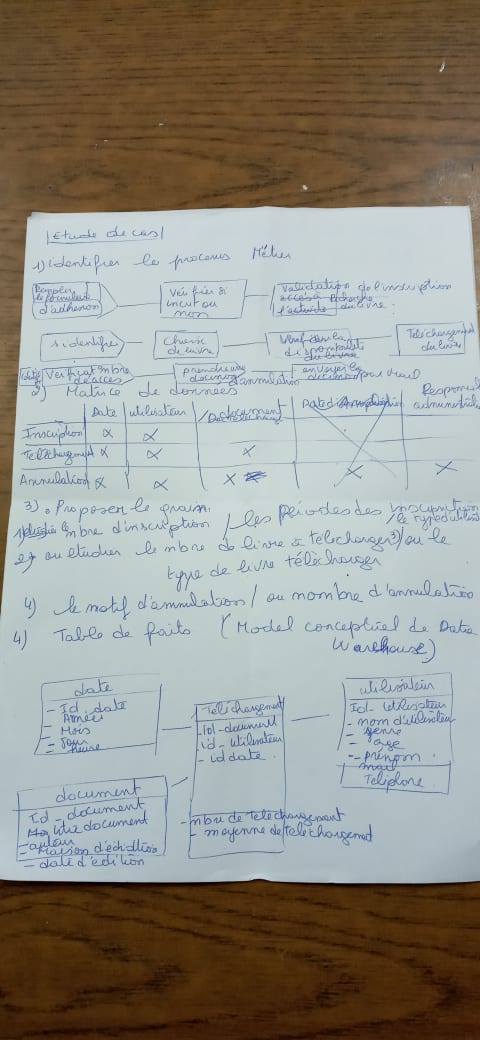 Etude de cas
1) identifier le processus Métier
Remplir le formulaire d'adhésion
Vérifier si inscrit ou non
Validation de l'inscription
Recherche du livre.
s'identifier
Choisir le livre
disponibilité du livre
Téléchargement du livre
Vérificat nbre d'accès
prendre un document
d'annulation
envoyer la décision par mail
2) Matrice de données
Date utilisateur document Responsable
Inscription x x
Téléchargement x x x
Annulation x x x x x
3). Proposer le grain.
nbre d'inscription / les périodes des inscription
2) ou etudier le nbre de livre à telecharger 3) / ou le
type de livre télécharger
4) le motif d'annulation / ou nombre d'annulation
4) Table de faits (Model conceptiel de Data
Warehouse)
date
- Id_date
Année
- Mois
- Jour
- heure
Téléchargement
- id-document
- id-utilisateur
- id date.
- nbre de telechargement
- moyenne de telechargement
utilisateur
Id-utilisateur
- nom d'utilisateur
- genre
- age
- prénom.
mail
Téléphone.
document
Id-document
titre document
- auteur
- Maison d'édition
- date d'édition